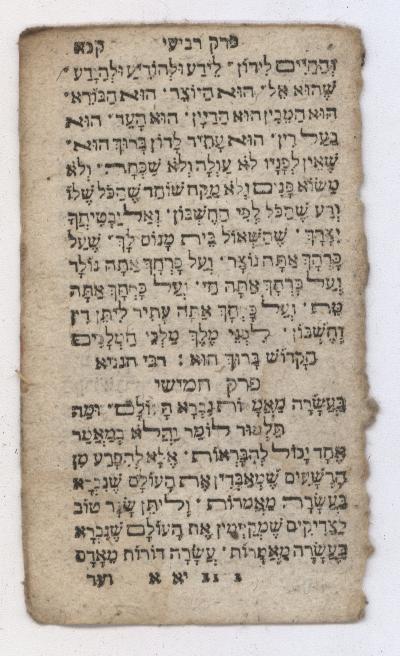 פרק רביעי קנא
וְהַחַיִּים לִידוֹן · לֵידַע וּלְהוֹדִיעַ וּלְהִוָּדַע
שֶׁהוּא אֵל · הוּא הַיּוֹצֵר · הוּא הַבּוֹרֵא ·
הוּא הַמֵּבִין הוּא הַדַּיָּין · הוּא הָעֵד · הוּא
בַּעַל דִּין · הוּא עָתִיד לָדוֹן בָּרוּךְ הוּא ·
שֶׁאֵין לְפָנָיו לֹא עַוְלָה וְלֹא שִׁכְחָה · וְלֹא
מַשּׂוֹא פָּנִים וְלֹא מִקַּח שׁוֹחַד שֶׁהַכֹּל שֶׁלּוֹ
וְדַע שֶׁהַכֹּל לְפִי הַחֶשְׁבּוֹן · וְאַל יַבְטִיחֲךָ
יִצְרָךְ · שֶׁהַשְּׁאוֹל בֵּית מָנוֹס לָךְ · שֶׁעַל
כָּרְחָךְ אַתָּה נוֹצָר · וְעַל כָּרְחָךְ אַתָּה נוֹלָד
וְעַל כָּרְחָךְ אַתָּה חַי · וְעַל כָּרְחָךְ אַתָּה
מֵת · וְעַל כָּרְחָךְ אַתָּה עָתִיד לִיתֵּן דִּין
וְחֶשְׁבּוֹן · לִפְנֵי מֶלֶךְ מַלְכֵי הַמְּלָכִים
הַקָּדוֹשׁ בָּרוּךְ הוּא : רבי חנניא
פרק חמישי
בַּעֲשָׂרָה מַאֲמָרוֹת נִבְרָא הָעוֹלָם · וּמַה
תַּלְמוּד לוֹמַר וַהֲלֹא בְּמַאֲמַר
אֶחָד יָכוֹל לְהִבָּרְאוֹת · אֶלָּא לְהִפָּרַע מִן
הָרְשָׁעִים שֶׁמְּאַבְּדִין אֶת הָעוֹלָם שֶׁנִּבְרָא
בַּעֲשָׂרָה מַאֲמָרוֹת · וְלִיתֵּן שָׂכָר טוֹב
לַצַּדִּיקִים שֶׁמְּקַיְּימִין אֶת הָעוֹלָם שֶׁנִּבְרָא
בַּעֲשָׂרָה מַאֲמָרוֹת · עֲשָׂרָה דוֹרוֹת מֵאָדָם
ועד